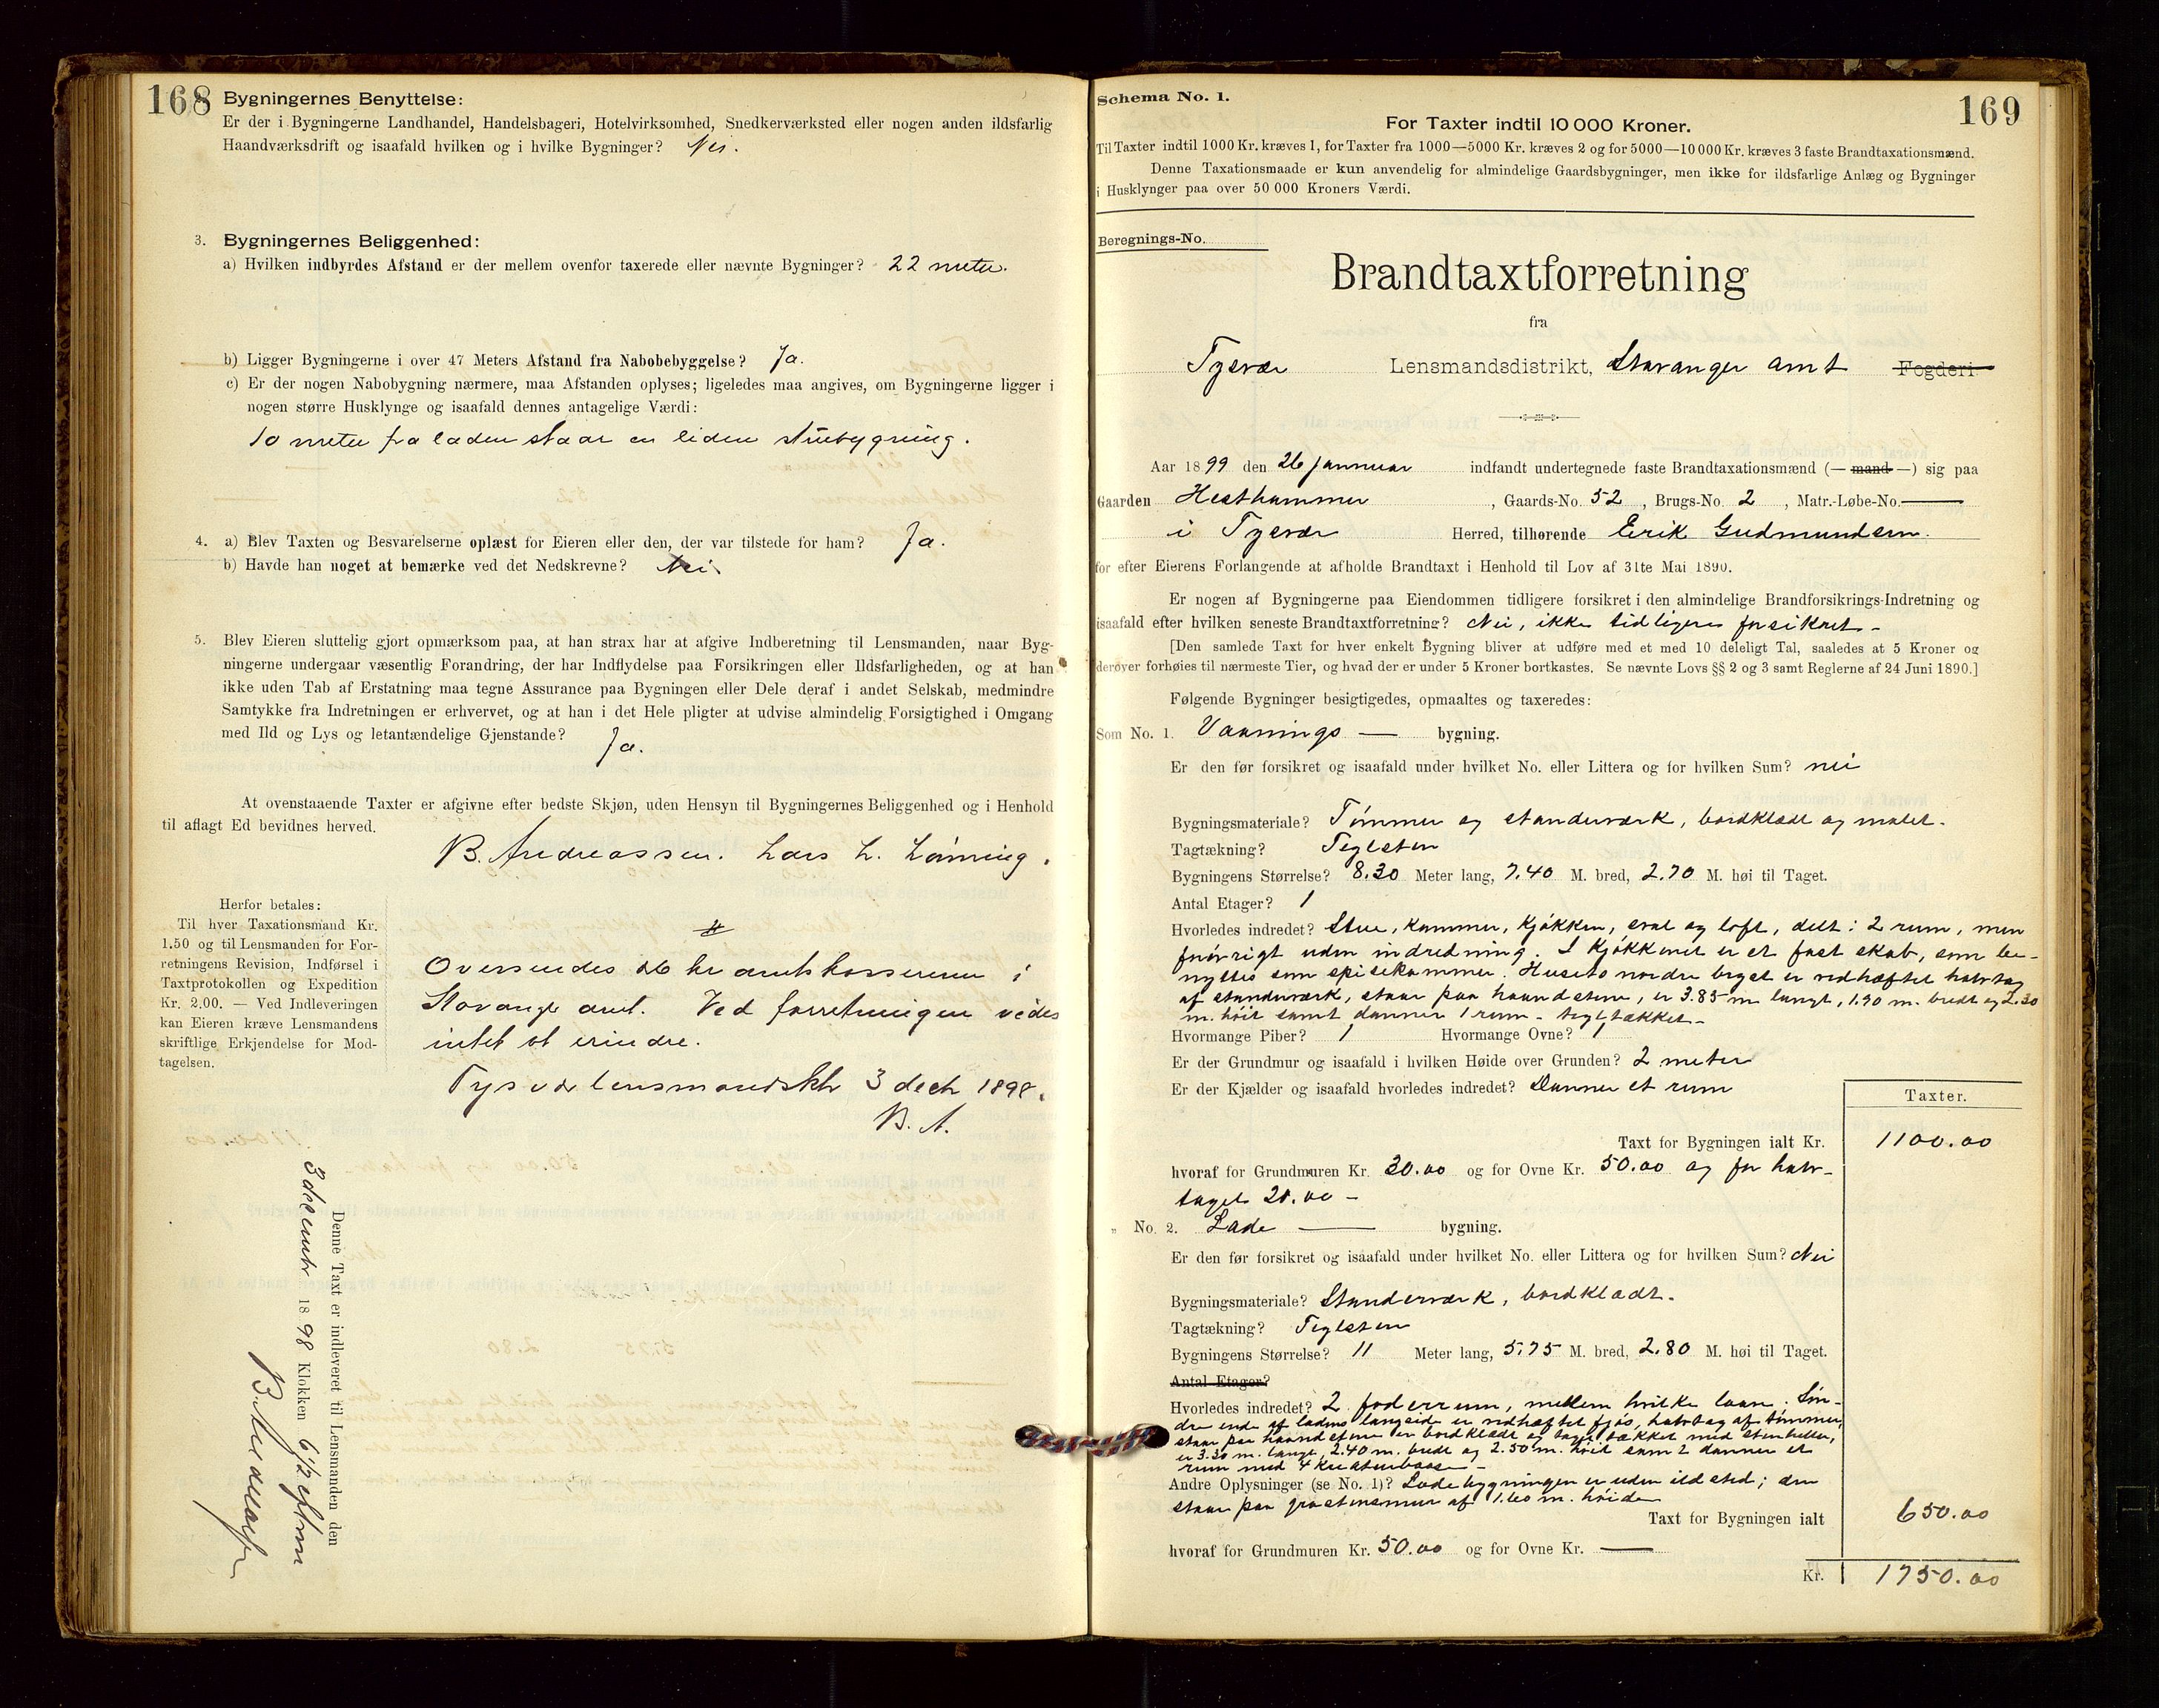 168
Bygningernes Benyttelse:
Er der i Bygningerne Landhandel, Handelsbageri, Hotelvirksomhed, Snedkerværksted eller nogen anden ildsfarlig
Haandværksdrift og isaafald hvilken og i hvilke Bygninger? Nei.
3. Bygningernes Beliggenhed:
a) Hvilken indbyrdes Afstand er der mellem ovenfor taxerede eller nævnte Bygninger? 22 meter.
b) Ligger Bygningerne i over 47 Meters Afstand fra Nabobebyggelse? Ja.
c) Er der nogen Nabobygning nærmere, maa Afstanden oplyses; ligeledes maa angives, om Bygningerne ligger i
nogen større Husklynge og isaafald dennes antagelige Værdi:
10 meter fra laden staar en liden stuebygning.
4. a) Blev Taxten og Besvarelserne oplæst for Eieren eller den, der var tilstede for ham? Ja.
b) Havde han noget at bemærke ved det Nedskrevne? Nei.
5. Blev Eieren sluttelig gjort opmærksom paa, at han strax har at afgive Indberetning til Lensmanden, naar Byg-
ningerne undergaar væsentlig Forandring, der har Indflydelse paa Forsikringen eller Ildsfarligheden, og at han
ikke uden Tab af Erstatning maa tegne Assurance paa Bygningen eller Dele deraf i andet Selskab, medmindre
Samtykke fra Indretningen er erhvervet, og at han i det Hele pligter at udvise almindelig Forsigtighed i Omgang
med Ild og Lys og letantændelige Gjenstande? Ja.
At ovenstaaende Taxter er afgivne efter bedste Skjøn, uden Hensyn til Bygningernes Beliggenhed og i Henhold
til aflagt Ed bevidnes herved.
B. Andreassen. Lars L. Lønning.
Herfor betales:
Til hver Taxationsmand Kr.
1.50 og til Lensmanden for For-
retningens Revision, Indførsel i
Taxtprotokollen og Expedition
Kr. 2.00. — Ved Indleveringen
kan Eieren kræve Lensmandens
skriftlige Erkjendelse for Mod-
tagelsen.
Oversendes hr amtskassereren i
Stavanger amt. Ved forretningen vides
intet at erindre.
Tysvær lensmandsktr 3 decbr 1898.
B. A.
Denne Taxt er indleveret til Lensmanden den
3 december 1898 Klokken 6 1/2 efterm
B. Andreassen
169
Schema No. 1.
For Taxter indtil 10 000 Kroner.
Til Taxter indtil 1000 Kr. kræves 1, for Taxter fra 1000—5000 Kr. kræves 2 og for 5000—10 000 Kr. kræves 3 faste Brandtaxationsmænd.
Denne Taxationsmaade er kun anvendelig for almindelige Gaardsbygninger, men ikke for ildsfarlige Anlæg og Bygninger
i Husklynger paa over 50 000 Kroners Værdi.
Beregnings-No.
Brandtaxtforretning
fra
Tysvær Lensmandsdistrikt, Stavanger amt Fogderi.
Aar 1899 den 26 januar indfandt undertegnede faste Brandtaxationsmænd (— mand —) sig paa
Gaarden Hesthammer, Gaards-No. 52, Brugs-No. 2, Matr.-Løbe-No. —
i Tysvær Herred, tilhørende Erik Gudmundsen.
for efter Eierens Forlangende at afholde Brandtaxt i Henhold til Lov af 31te Mai 1890.
Er nogen af Bygningerne paa Eiendommen tidligere forsikret i den almindelige Brandforsikrings-Indretning og
isaafald efter hvilken seneste Brandtaxtforretning? Nei, ikke tidligere forsikret.
[Den samlede Taxt for hver enkelt Bygning bliver at udføre med et med 10 deleligt Tal, saaledes at 5 Kroner og
derover forhøies til nærmeste Tier, og hvad der er under 5 Kroner bortkastes. Se nævnte Lovs §§ 2 og 3 samt Reglerne af 24 Juni 1890.]
Følgende Bygninger besigtigedes, opmaaltes og taxeredes:
Som No. 1. Vaanings — bygning.
Er den før forsikret og isaafald under hvilket No. eller Littera og for hvilken Sum? nei
Bygningsmateriale? Tømmer og standerværk, bordklædt og malet.
Tagtækning? Teglsten
Bygningens Størrelse? 8.30 Meter lang, 7.40 M. bred, 2.70 M. høi til Taget.
Antal Etager? 1
Hvorledes indredet? Stue, kammer, kjøkken, sval og loft, delt i 2 rum, men
forøvrigt uden indredning. I kjøkkenet er et fast skab, som be-
nyttes som spisekammer. Husets nordre bryst er vedhæftet halvtag
af standerværk, staar paa haandstene, er 3.85 m. langt, 1.90 m. bredt og 2.30
m. høit samt danner 1 rum. teglstækket.
Hvormange Piber? 1 Hvormange Ovne? 1
Er der Grundmur og isaafald i hvilken Høide over Grunden? 2 meter
Er der Kjælder og isaafald hvorledes indredet? Danner et rum
Taxter.
Taxt for Bygningen ialt Kr. 1100.00
hvoraf for Grundmuren Kr. 30.00 og for Ovne Kr. 50.00 og for halv-
taget 20.00 —
" No. 2. Lade — bygning.
Er den før forsikret og isaafald under hvilket No. eller Littera og for hvilken Sum? Nei
Bygningsmateriale? Standerværk, bordklædt.
Tagtækning? Teglsten
Bygningens Størrelse? 11 Meter lang, 5.75 M. bred, 2.80 M. høi til Taget.
Antal Etager?
Hvorledes indredet? 2 foderrum, mellem hvilke laave. Søn-
dre ende af ladens langside er vedhæftet fjøs, halvtag af tømmer,
staar paa haandstene er bordklædt og taget tækket med stenheller,
er 3.30 m. langt, 2.40 m. bredt og 2.50 m. høit samt danner et
rum med 4 kreaturbaase —
Andre Oplysninger (se No. 1)? Ladebygningen er uden ildsted; den
staar paa graastensmur af 1.60 m. høide
Taxt for Bygningen ialt 650.00
hvoraf for Grundmuren Kr. 50.00 og for Ovne Kr. —
Kr. 1750.00